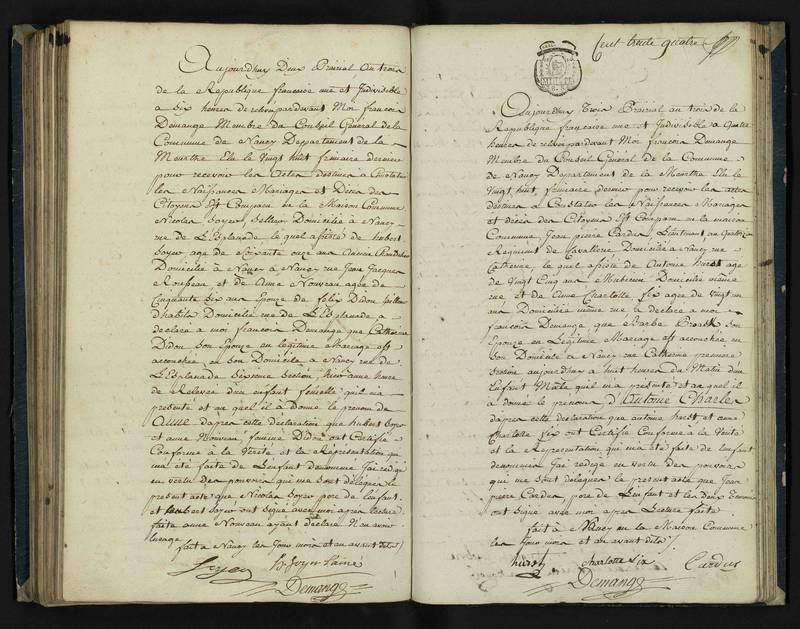 Aujourdhuy Deux Prairial An trois
de la Republique francoise une et Indivisible
a six heures de relevé pardevant Moi francois
Demange Membre du Conseil Général de la
Commune de Nancy Departement de la
Meurthe Elu le Vingt huit frimaire dernier
pour recevoir les Actes destinés a Constater
les Naissances Mariages et Décès des
Citoyens est Comparu en la Maison Commune
Nicolas Soyer, Domicilié à Nancy
rue de L'Esplanade le quel assisté de hubert
Soyer agé de soixante onze ans
Domicilié à Nancy à Nancy rue Jean Jacques
Rousseau et de Anne Nouveau agée de
Cinquante six ans Epouse de felix Didon tailleur
dhabits Domiciliée rue de L'Esplanade a
declaré à moi francois Demange que Catherine
Didon son Epouse en légitime Mariage est
accouchée en son Domicile a Nancy rue de
L'Esplanade Sixieme Section hier onze heures
de Relevée d'un enfant femelle quil ma
présenté et au quel il à donné le prenom de
Anne dapres cette déclaration que hubert Soyer
et anne Nouveau femme Didon ont Certifié
Conforme à la Vérité et la Représentation qui
ma été faite de Lenfant denommé Jai redigé
en vertu des pouvoirs qui me sont délégués le
présent acte que Nicolas Soyer pere de lenfant
et hubert Soyer ont signé avec moi apres lecture
faite anne Nouveau ayant déclaré N'en avoir
lusage
fait à Nancy les Jour mois et an avant dits
Soyer
Soyer Lainé
Demange
Cent trente quatre
Aujourdhuy Trois Prairial an trois de la
Republique francaise une et Indivisible a Quatre
heures de relevé pardevant Moi francois Demange
Membre du Conseil Général de la Commune
de Nancy Département de la Meurthe Elu le
Vingt huit frimaire dernier pour recevoir les actes
destinés a Constater les Naissances Mariages
et décès des Citoyens est Comparu en la maison
Commune, Jean pierre Cardus Lieutenant au
Regiment de Cavallerie Domicilié a Nancy rue
Catherine, le quel assisté de Antoine hurst agé
de Vingt Cinq ans Musicien Domicilié même
rue et de Anne Charlotte Six agée de Vingt un
ans Domiciliée même rue a déclaré a moi
francois Demange que Barbe son
Epouse en Légitime Mariage est accouchée en
son Domicile à Nancy rue Catherine premiere
Section aujourdhuy a huit heures du Matin d'un
Enfant Male quil ma présenté et au quel il
a donné le prenom d'Antoine Charles
dapres cette déclaration que antoine hurst et anne
Charlotte Six ont Certifié Conforme à la Verité
et la Représentation qui m'a été faite de lenfant
denommé Jai rédigé en vertu des pouvoirs
qui me sont délégués le présent acte que Jean
pierre Cardus, pere de Lenfant et les deux Temoins
ont signé avec moi apres Lecture faite
fait à Nancy en la Maison Commune
les Jour mois et an avant dits
hurst
charlotte Six
Cardus
Demange